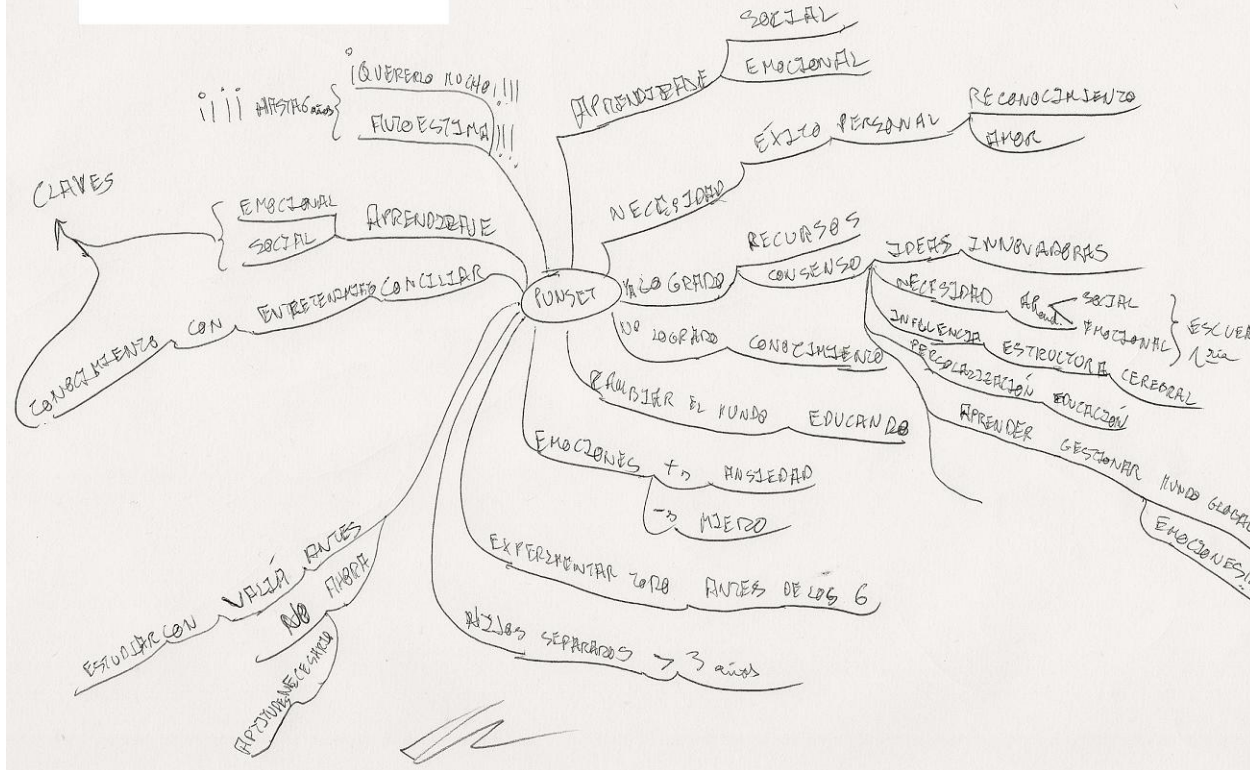 PUNSET
APRENDIZAJE
SOCIAL
EMOCIONAL
NECESIDAD
ÉXITO PERSONAL
RECONOCIMIENTO
AMOR
YA LOGRADO
RECURSOS
CONSENSO
IDEAS INNOVADORAS
NECESIDAD
SOCIAL
EMOCIONAL
INFLUENCIA ESTRUCTURA CEREBRAL
EDUCACIÓN
APRENDER GESTIONAR MUNDO GLOBAL
EMOCIONES
NO LOGRADO CONOCIMIENTO
CAMBIAR EL MUNDO EDUCANDO
EMOCIONES
+ ANSIEDAD
- MIEDO
EXPERIMENTAR TODO ANTES DE LOS 6
HIJOS SEPARADOS > 3 años
ESTUDIAR CON VALIÁ ANTES
NO AHORA
CONOCIMIENTO CON ENTRETENIMIENTO CONCILIAR
APRENDIZAJE
EMOCIONAL
SOCIAL
CLAVES
¡¡¡¡ HASTA 6 años
¡QUERERLO MUCHO!!!!
AUTOESTIMA!!!